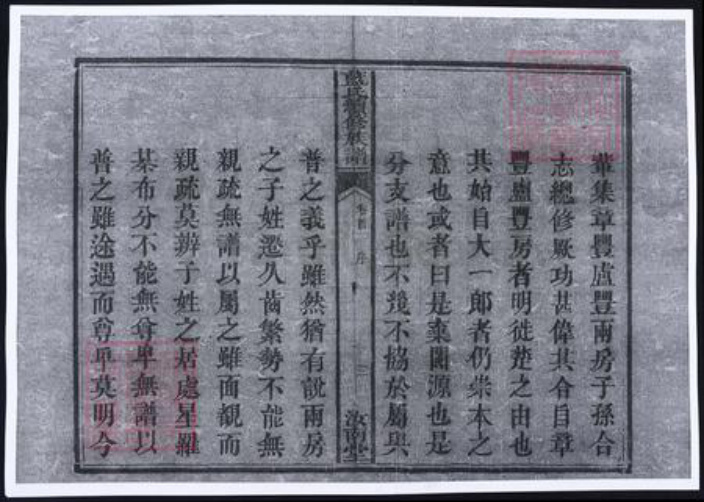 輩集章豐廬豐兩房子孫合
志總修厥功甚偉其合自章
豐廬豐房者明徙楚之由也
其始自大一郎者仍崇本之
意也或者曰是棄閩源也是
分支譜也不幾不協於屬與
藍氏續修族譜
卷首 序
汝南堂
普之義乎雖然猶有說兩房
之子姓遷久齒繁勢不能無
親疏無譜以屬之雖面覿而
親疏莫辨子姓之居處星羅
棊布分不能無尊卑無譜以
普之雖途遇而尊卑莫明今